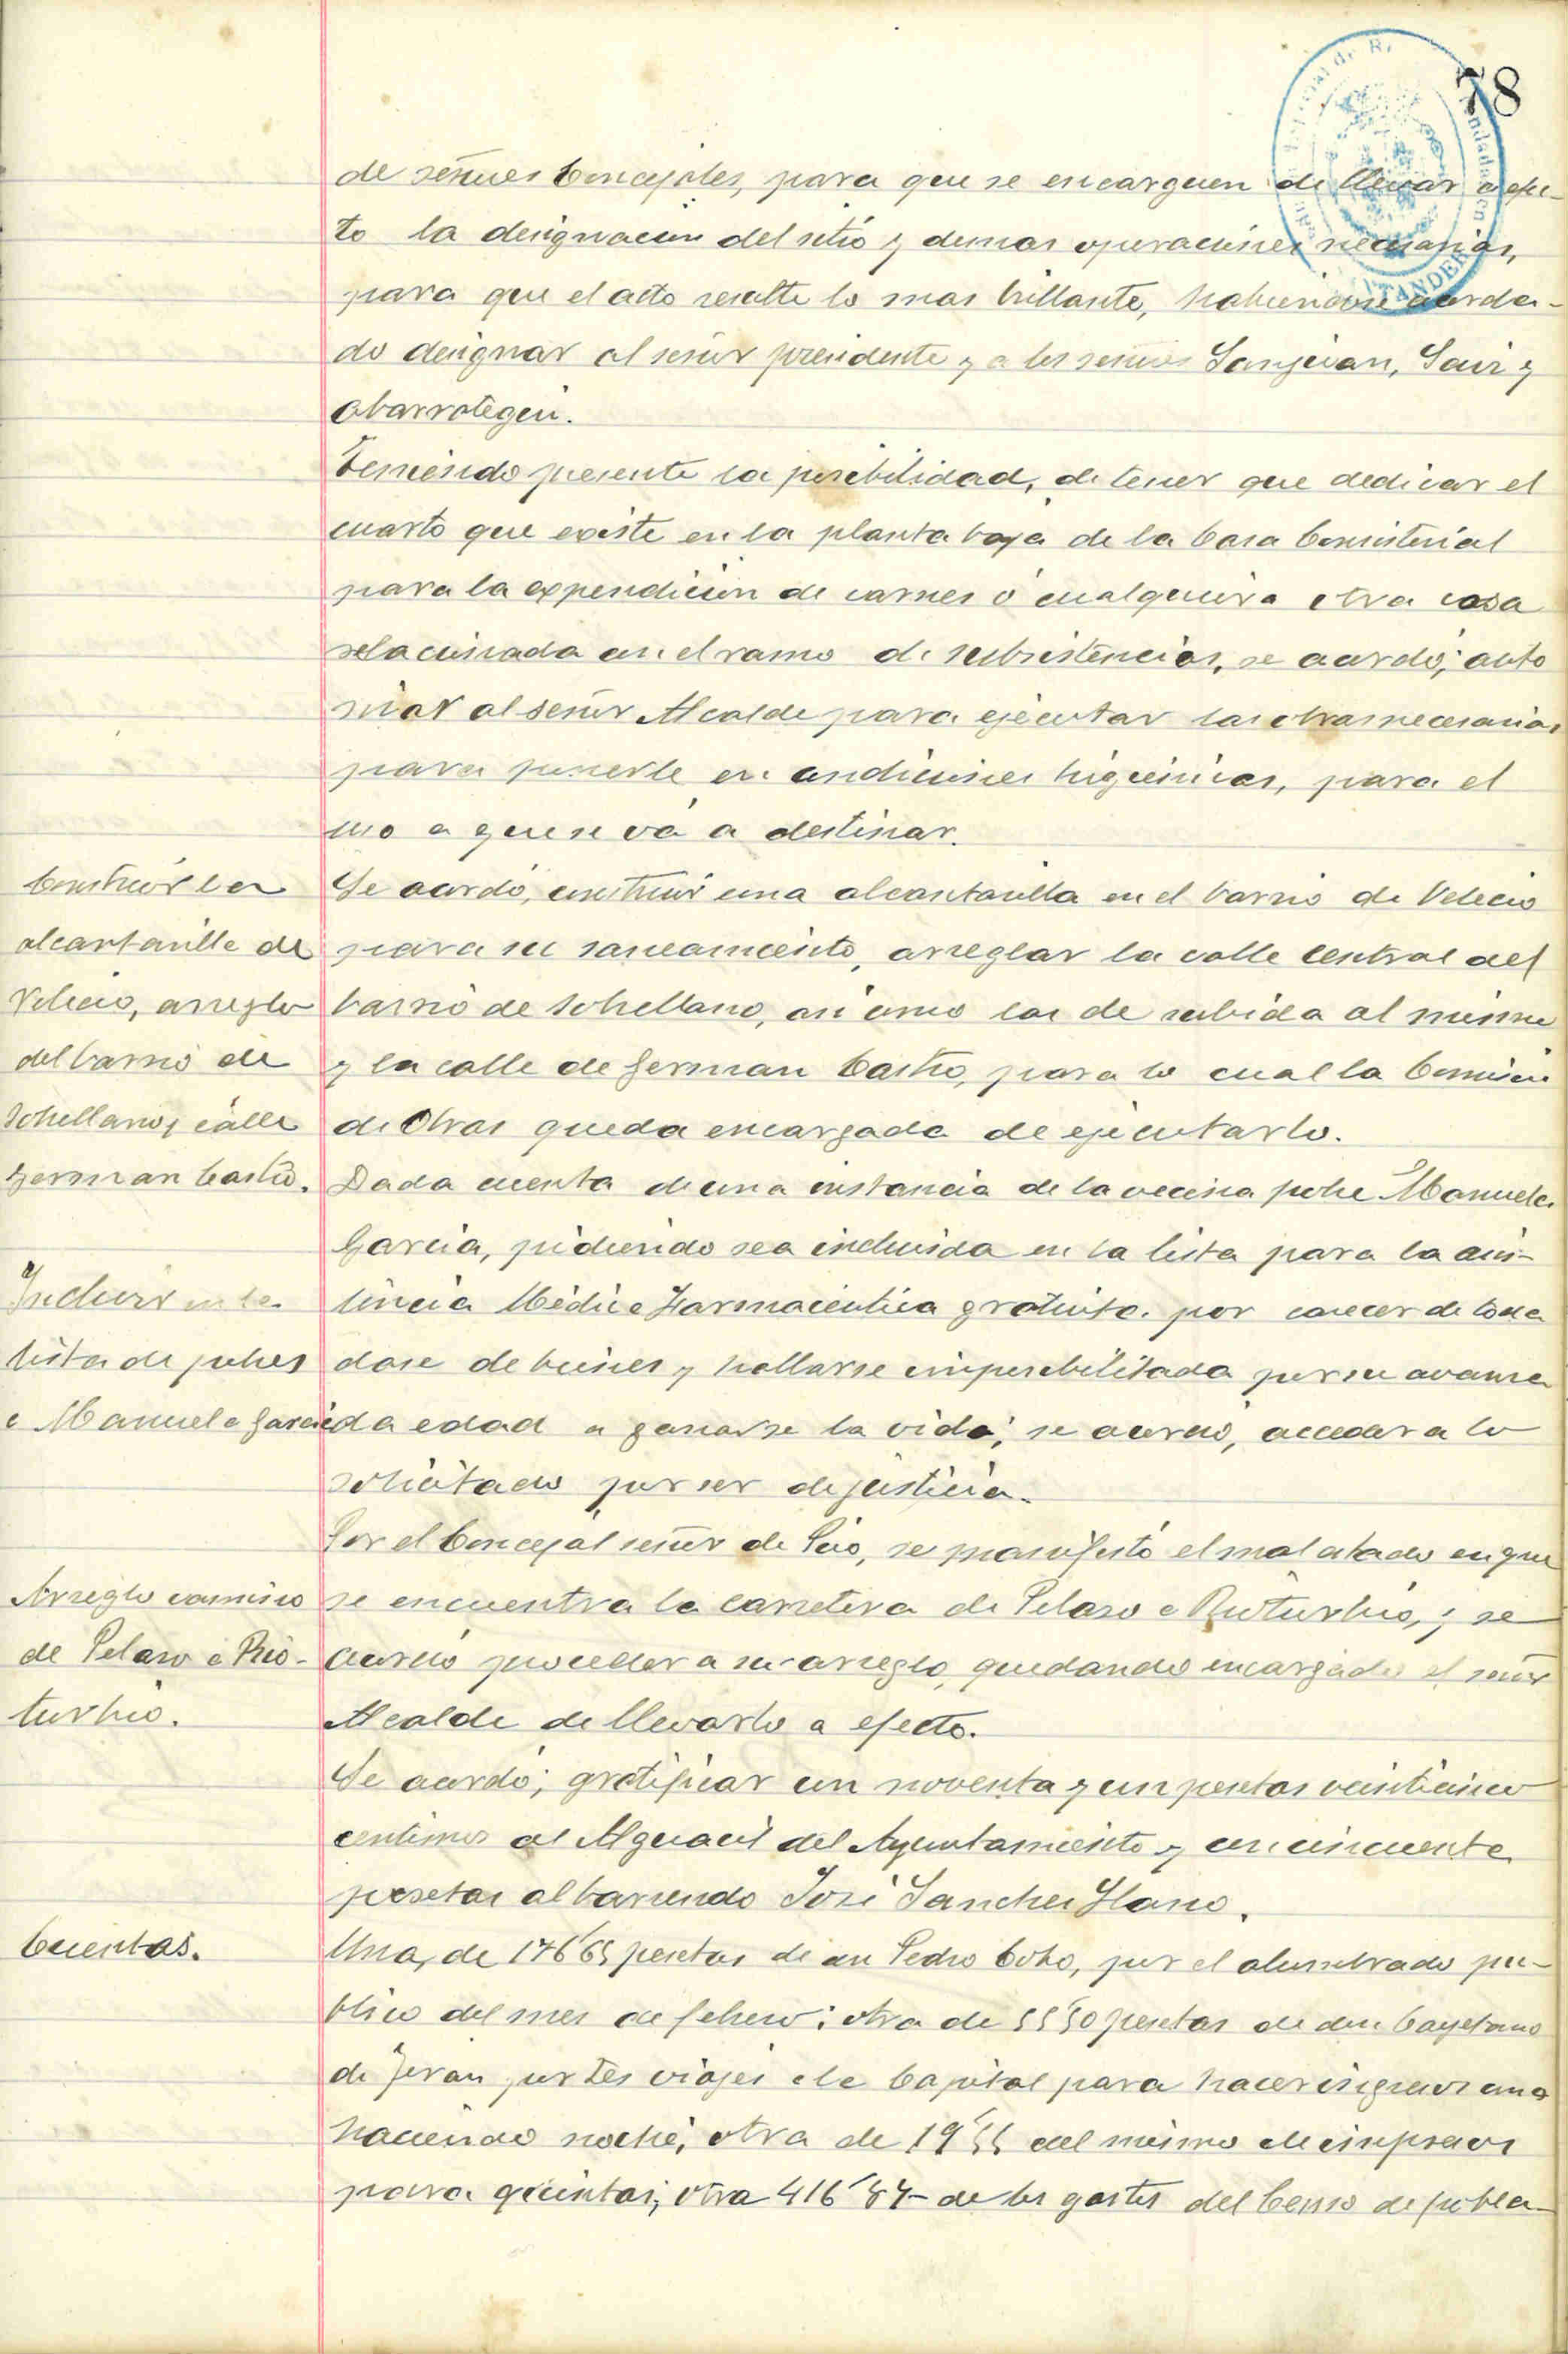 78
de señores Concejales, para que se encarguen de llevar a efec-
to la designacion del sitio y demas operaciones necesarias,
para que el acto resulte lo mas brillante, habiendose acorda-
do designar al señor presidente y a los señores Sanjuan, Saiz y
Abarrategui.
Teniendo presente la posibilidad, de tener que dedicar el
cuarto que existe en la planta baja de la Casa Consistorial
para la expendicion de carnes o cualquiera otra cosa
relacionada con el ramo de subsistencias, se acordó; auto
rizar al señor Alcalde para ejecutar las obras necesarias
para ponerle en condiciones higienicas, para el
uso a que se va a destinar.
Construir la
alcantarilla de
Velecio, arreglo
del barrio de
Sohellano y calle
German Castro.
Se acordó, construir una alcantarilla en el barrio de Velecio
para su saneamiento, arreglar la calle central del
barrio de Sohellano, asi como las de subida al mismo
y la calle de German Castro, para lo cual la Comision
de Obras queda encargada de ejecutarlo.
Incluir en la
lista de pobres
a Manuela Garcia
Dada cuenta de una instancia de la vecina pobre Manuela
Garcia, pidiendo sea incluida en la lista para la asis-
tencia Médico Farmaceutica gratuita por carecer de toda
clase de bienes y hallarse imposibilitada por su avanza
da edad a ganarse la vida; se acordó, acceder a lo
solicitado por ser de justicia.
Arreglo camino
de Pelaso a Rio-
turbio.
Por el Concejal señor de Rio, se manifestó el mal estado en que
se encuentra la carretera de Pelaso a Rioturbio, y se
acordó proceder a su arreglo, quedando encargado el señor
Alcalde de llevarlo a efecto.
Se acordó; gratificar con noventa y un pesetas veinticinco
centimos al Alguacil del Ayuntamiento y con cincuenta
pesetas al barrendo José Sanchez Llano.
Cuentas.
Una, de 17665 pesetas de don Pedro Cobo, por el alumbrado pu-
blico del mes de febrero; otra de 5550 pesetas de don Cayetano
de Teran por tres viajes a la Capital para hacer ingresos uno
haciendo noche, otra de 1955 del mismo de impresos
para quintas; otra 416'87- de los gastos del Censo de pobla-